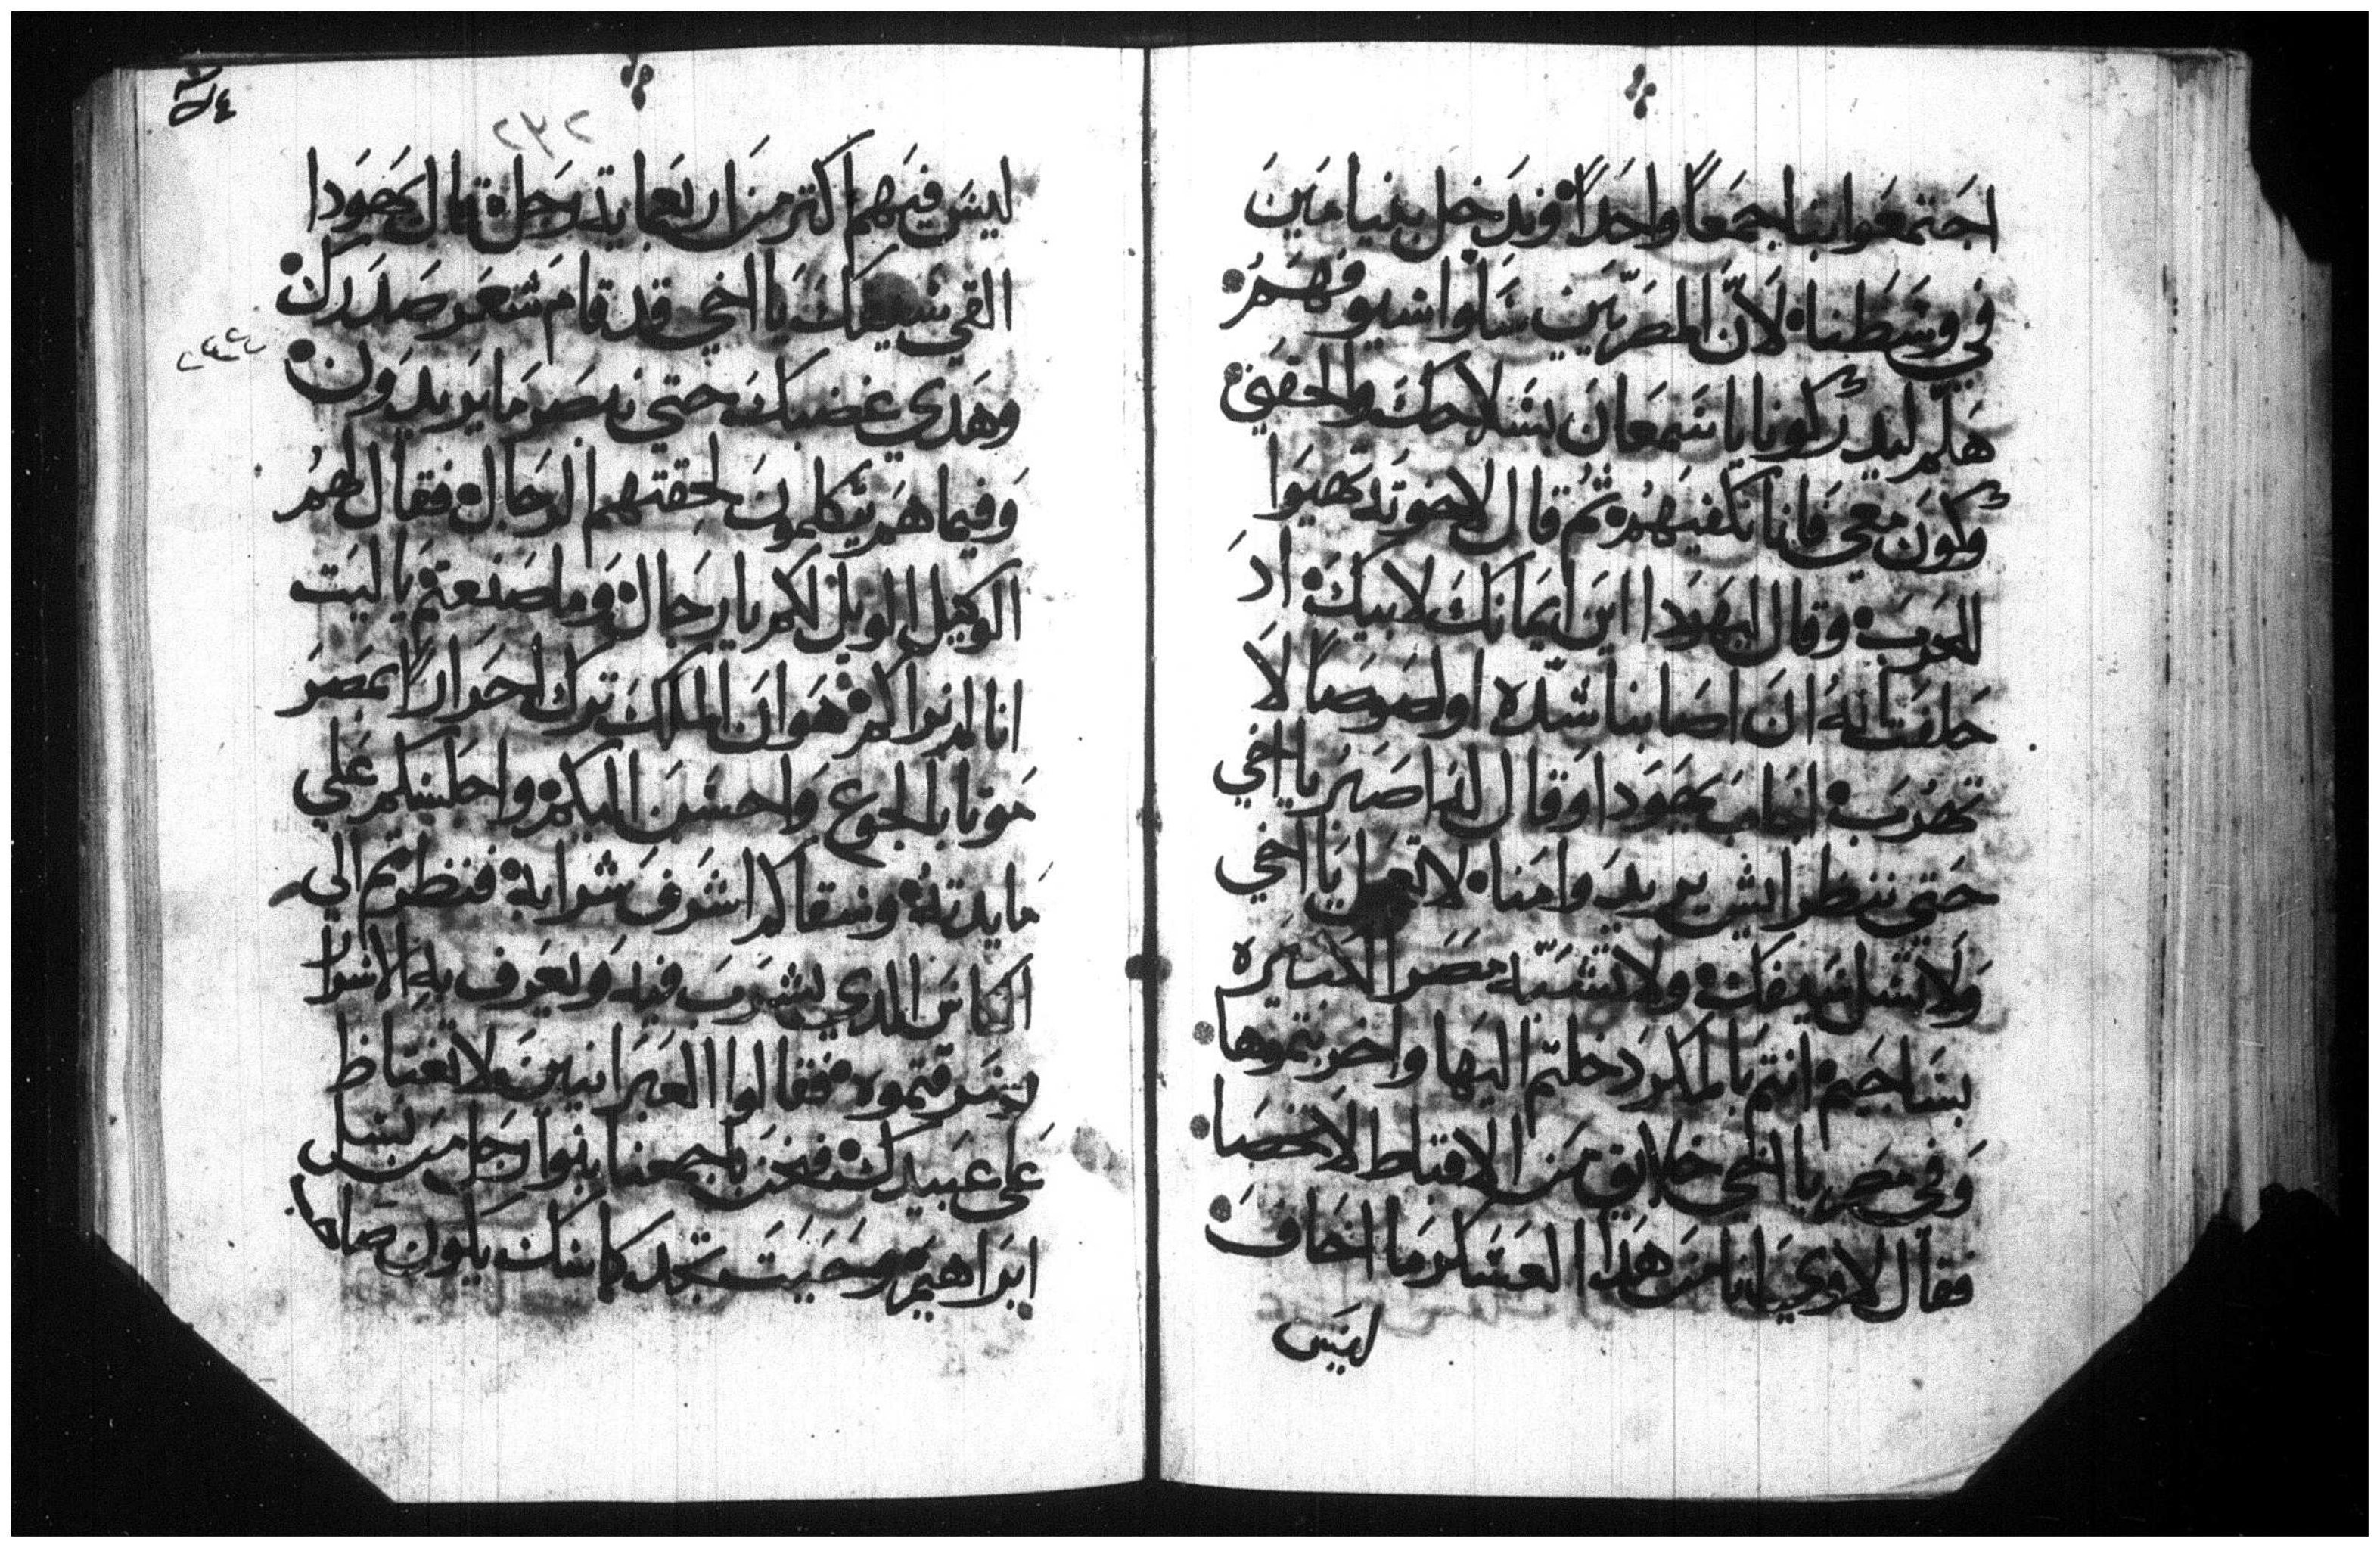 اجَتمعَوا بنا جمَعاً واحَداً وندَخل بنيامَينَ
في وسَطنا لانّ المصَريّين سَلوا سيوفهَمُ
هَلمَ ليدركونا يا سَمعَانَ بسَلاحكَ والحقني
وكونَ معَي فانا نكفيَهمُ ثمُ قال لاخوتَه تهَيوَا
للحَربَ وقال ليهَودا اينَ ايمَانك لابيكَ ادَ
حَلفتَ لهُ انَ اصَابنا شدّه اولصَوصَاً لا
تهَربَ اجَابَ يهَودا وَقال لهَ اصَبرَ يا اخي
حَتي ننظر ايش يريدَوا منا لا تعجل يَا اخي
وَلا تسَل سَيفكَ ولا تشبّه مصَرَ الكبَيرَه
بسَاجَيم انتم بالمكر دَخلتم اليَها واخرَبتموهَا
وَفي مصَر يا اخي خلايق مَن الاقباط لا تحصَا
فقال لاوي انا منَ هَدا العسَكر مَا اخَافَ
ليَسَ
٢٣٢
ليسَ فيَهم اكتر مَن اربَعمايةَ رَجَل قال يهَودا
القي سَيفكَ يَا اخي قد قامَ شعَر صَدَركَ
وهَدي غضبكَ حتي نبصَر مَا يرَيدوَن
وَفيما همَ يتكلمونَ لحقتهم الرجَال فقال لهمُ
الوكيل الويل لكم يا رجَال وَما صَنعتم يا ليَت
انا لم نراكم هَوانَ الملكَ ترك احَراراً بمَصَرَ
مَوتا بالجوع وَاحسَنَ اليكم واجَلسَكم عَلي
مايدتهُ وسَقاكم اشرَفَ شرَابهُ فنظرتم الي
الكاسَ الدي يشرَبَ فيه وَيعَرف بهِ الاسَرار
سَرقتموه فقالوا العبَرانيينَ لا تغتاظ
عَلي عَبيدكَ فنحَن باجمعنا بنوا رجَل منَ نسَل
ابرَاهيمَ وحَيَت تجَد كاسَك يكون صَاحبه